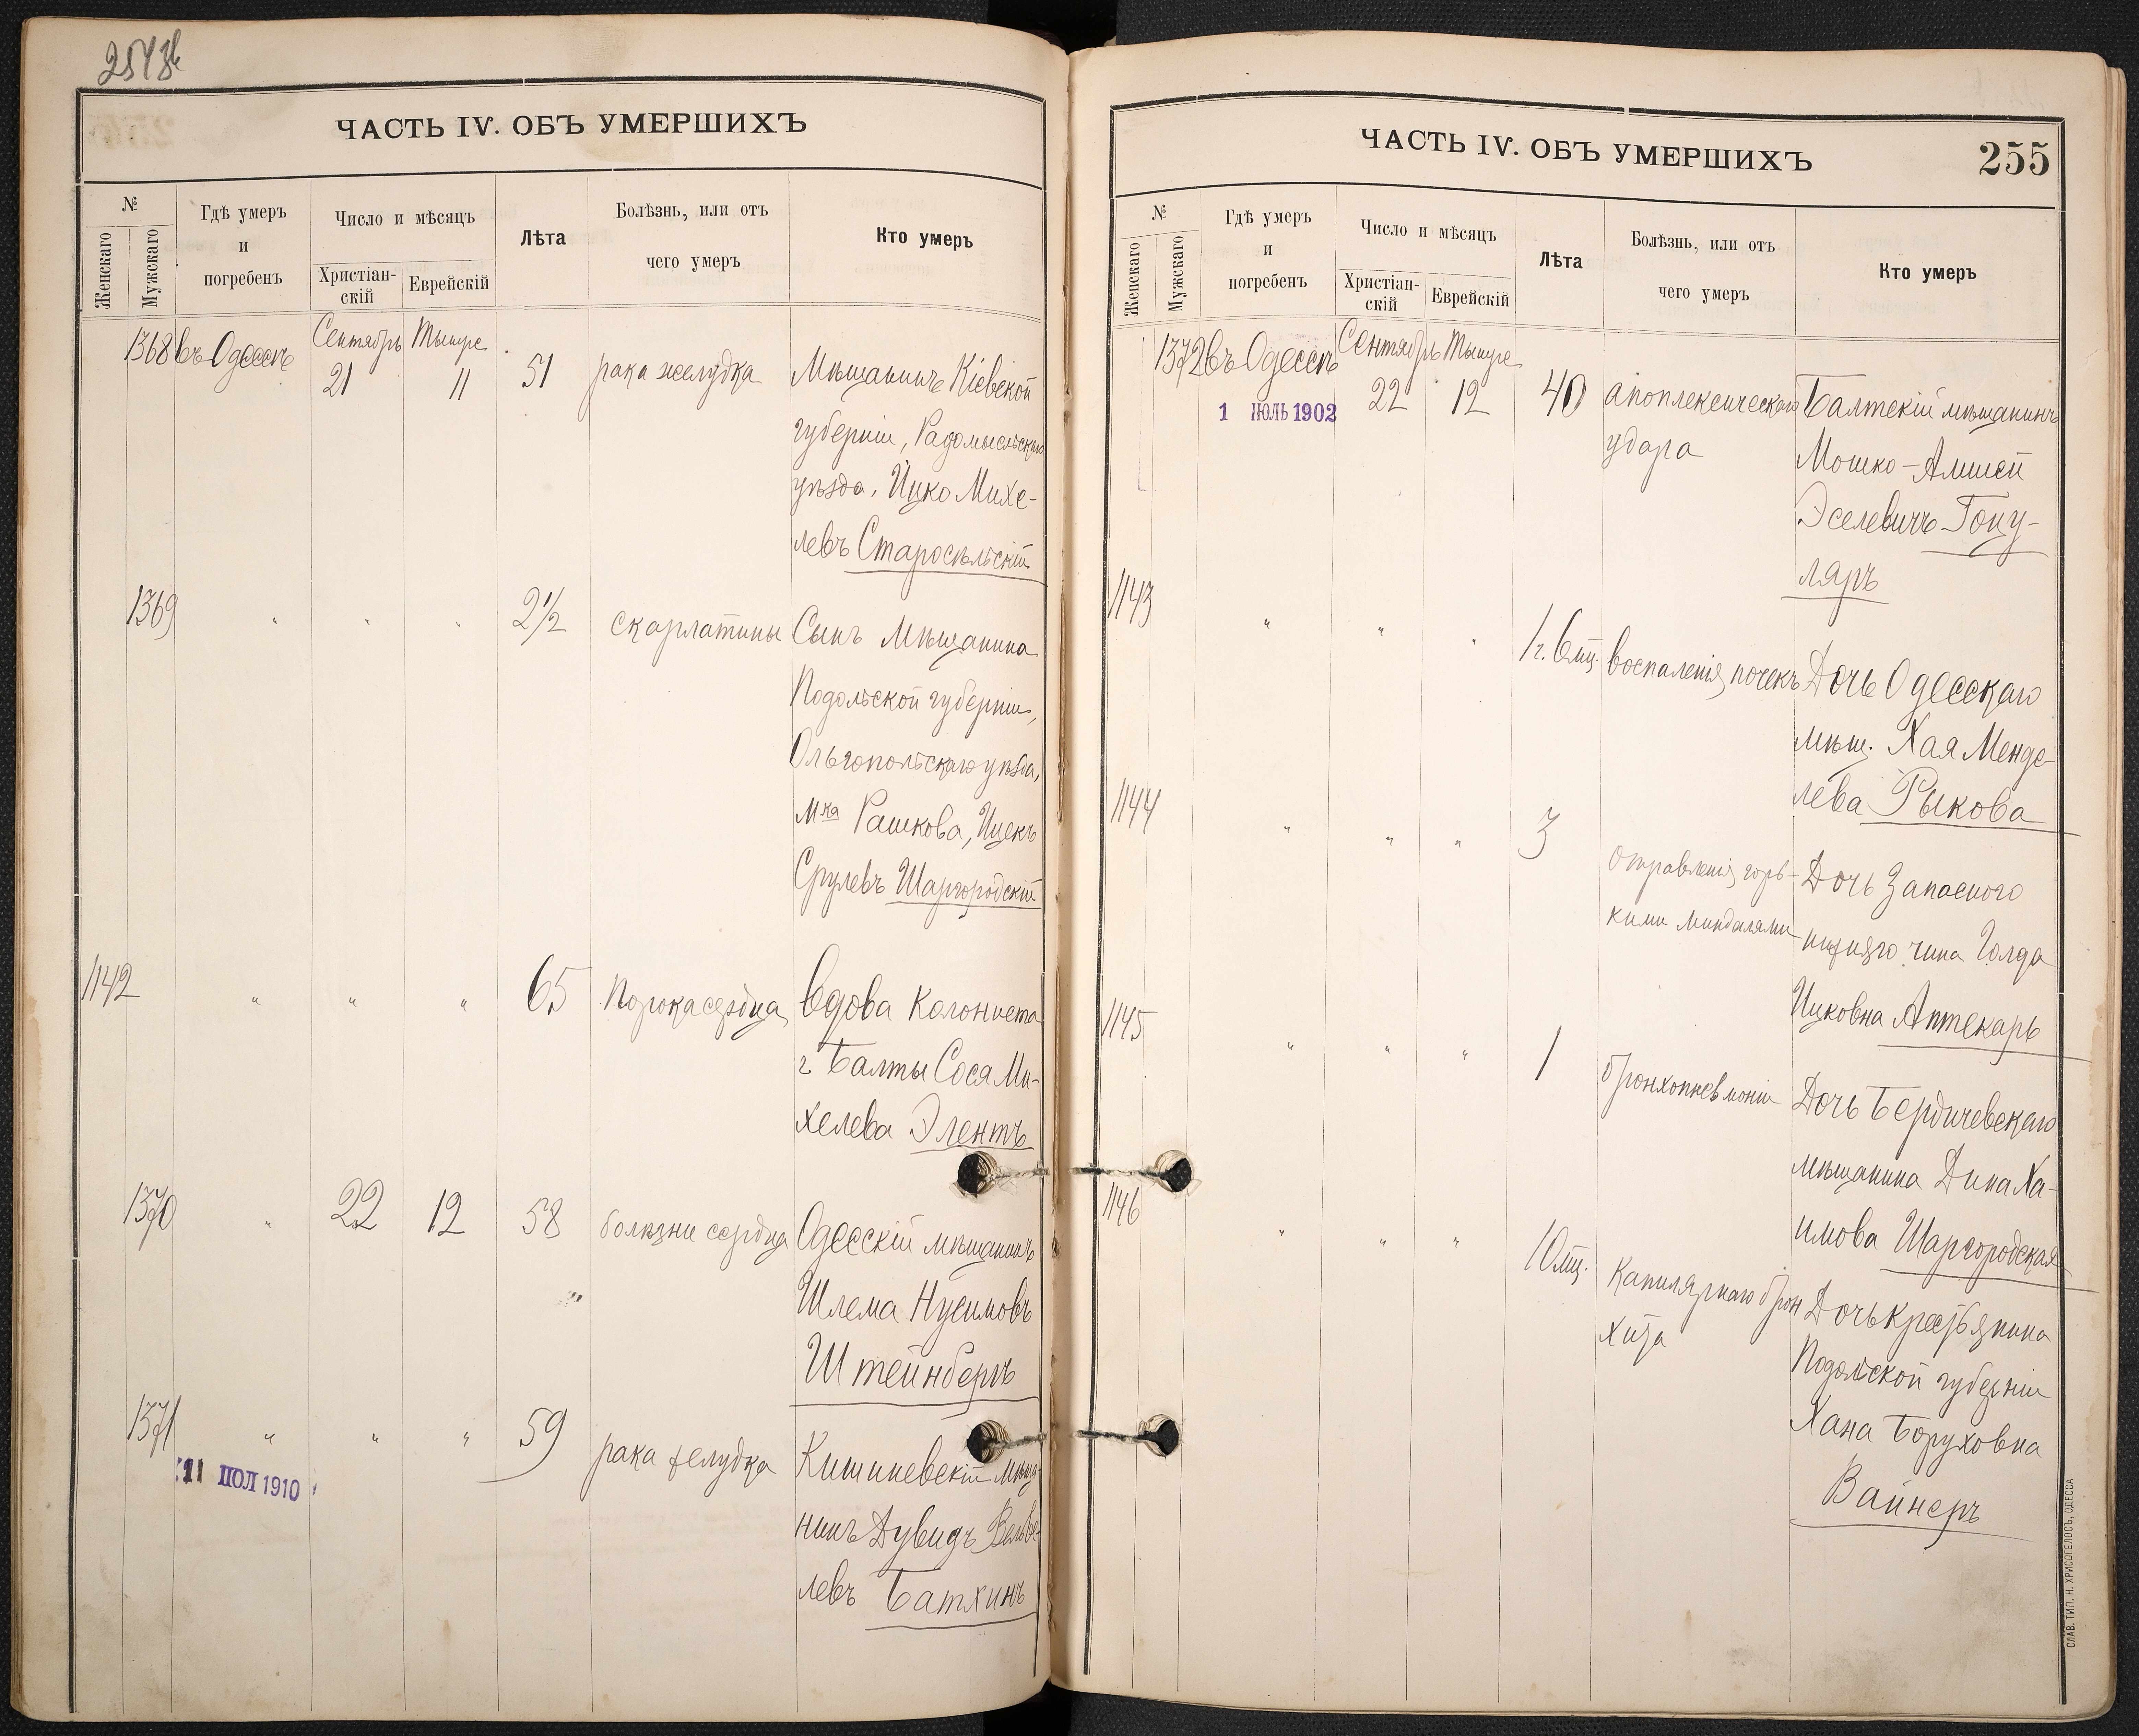 254 об
ЧАСТЬ IV. ОБЪ УМЕРШИХЪ
№
Женскаго
Мужскаго
Гдѣ умеръ
и
погребенъ
Число и мѣсяцъ
Христіан-
скій
Еврейскій
Лѣта
Болѣзнь, или отъ
чего умеръ
Кто умеръ
1368 въ Одессѣ Сентябрь Тышре
21 11 51 рака желудка Мѣщанинъ Кіевской
губерніи, Радомысльскаго
уѣзда, Ицко Михе-
левъ Старосѣльскій
1369 " " " 2½ скарлатины Сынъ мѣщанина
Подольской губерніи,
Ольгопольскаго уѣзда,
мка Рашкова, Ицекъ
Срулевъ Шаргородскій
1142 " " " 65 Порока сердца Вдова колониста
г. Балты Сося Ми-
хелева Элентъ
1370 " 22 12 58 болѣзни сердца Одесскій мѣщанинъ
Шлема Нусимовъ
Штейнбергъ
1371 " " " 59 рака желудка Кишиневскій мѣща-
11 ПОЛ 1910
нинъ Дувидъ Вольве-
левъ Батхинъ
ЧАСТЬ IV. ОБЪ УМЕРШИХЪ
255
№
Женскаго
Мужскаго
Гдѣ умеръ
и
погребенъ
Число и мѣсяцъ
Христіан-
скій
Еврейскій
Лѣта
Болѣзнь, или отъ
чего умеръ
Кто умеръ
1372 въ Одессѣ Сентябрь Тышре
1 ІЮЛЬ 1902
22 12 40 апоплексическаго Балтскій мѣщанинъ
удара Мошко-Амшей
Эселевичъ Гоку-
ляръ
1143 " " " 1 г. 6 мц. воспаленія почекъ Дочь Одесскаго
мѣщ. Хая Менде-
лева Рыкова
1144 " " " 3 отравленія горь- Дочь Запаснаго
кими миндалями нижняго чина Голда
Ицковна Аптекарь
1145 " " " 1 бронхопневмоніи Дочь Бердичевскаго
мѣщанина Дина Ха-
имова Шаргородская
1146 " " " 10 мц. Капилярнаго брон Дочь крестьянина
хита Подольской губерніи
Хана Боруховна
Вайнеръ
СЛАВ. ТИП. Н. ХРИСОГЕЛОСЪ, ОДЕССА